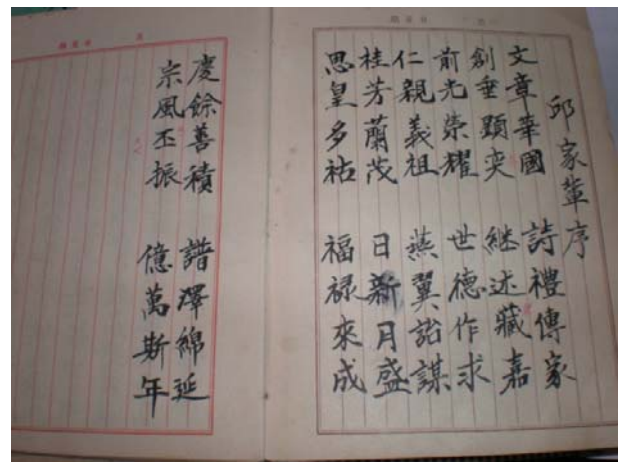 邱家輩序
文章華國 詩禮傳家
創垂顕奕 継述藏嘉
前光榮耀 世德作求
仁親義祖 燕翼詒謀
桂芳蘭茂 日新月盛
思皇多祜 福禄來成
慶餘善積 譜澤綿延
宗風丕振 億萬斯年